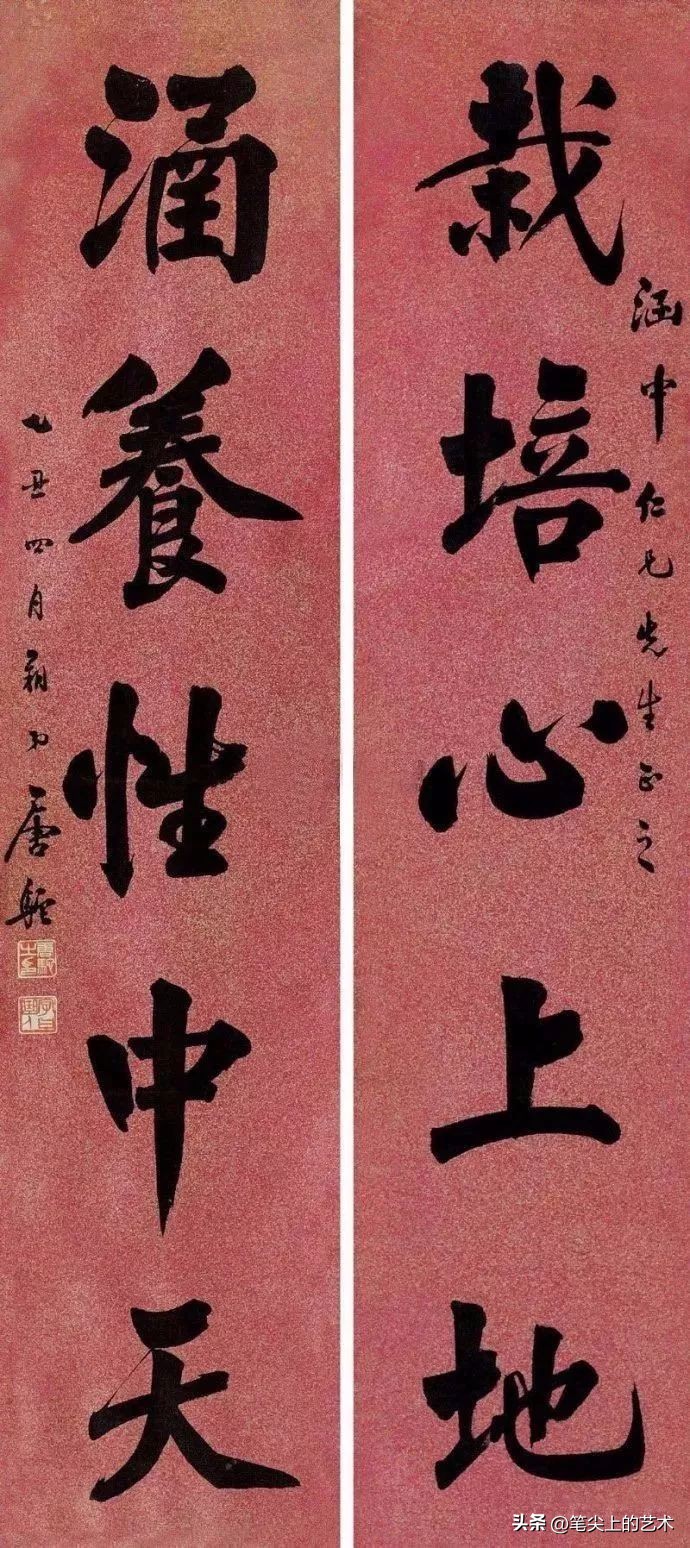 栽培心上地
涵中仁兄先生正之
涵養性中天
乙丑四月唐駝
头条 @笔尖上的艺术